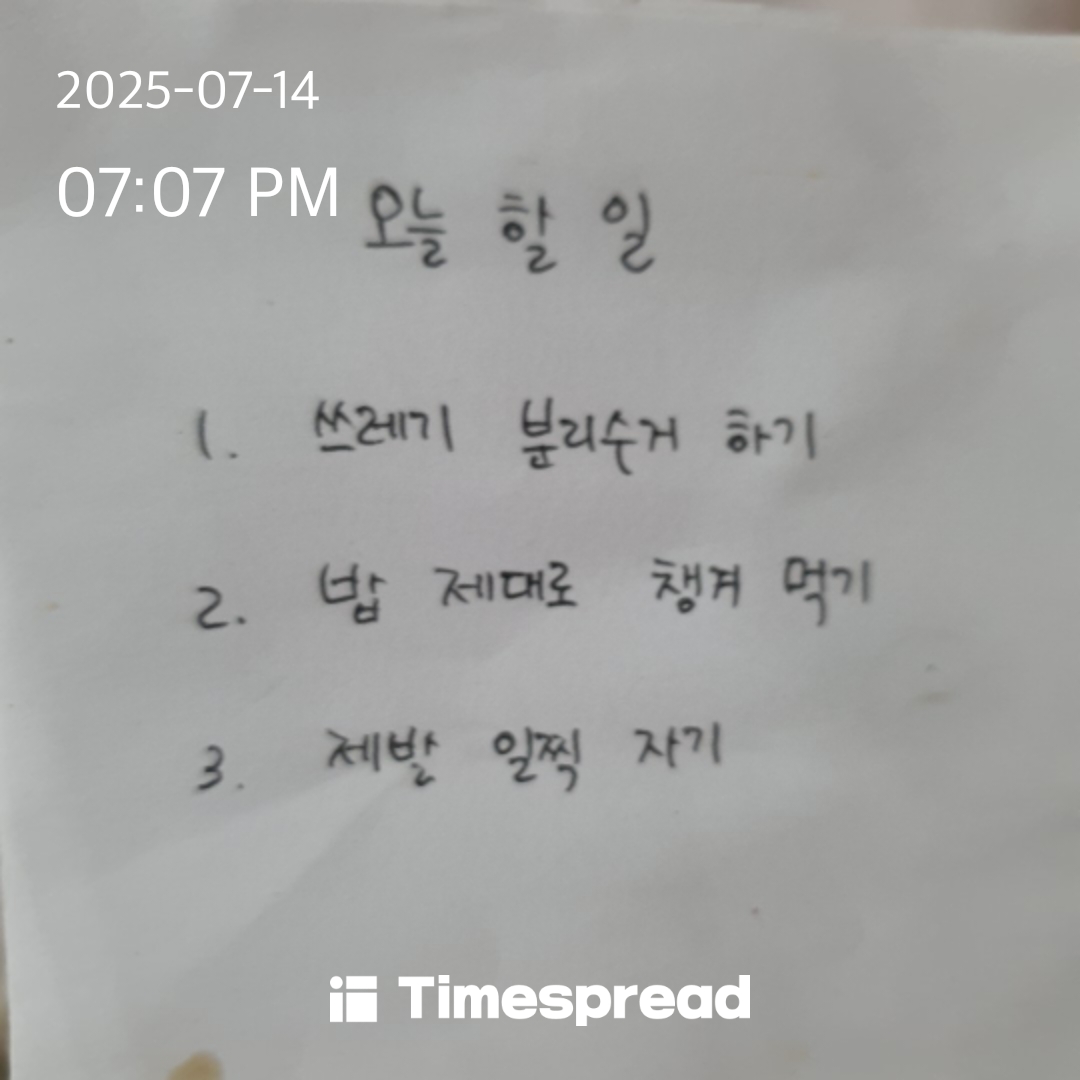 2025-07-14
07:07 PM
오늘 할 일
1. 쓰레기 분리수거 하기
2. 밥 제대로 챙겨 먹기
3. 제발 일찍 자기
Timespread